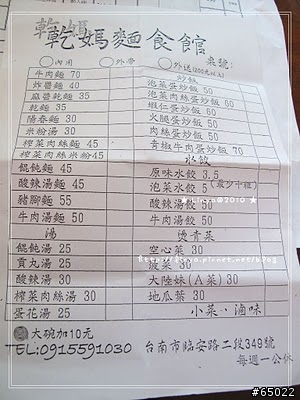 乾媽麵食館
內用 外帶 外送(200元以上) 桌號:
牛肉麵 70
炸醬麵 40
麻醬乾麵 35
乾麵 35
陽春麵 30
米粉湯 30
榨菜肉絲麵 45
榨菜肉絲米粉45
餛飩麵 45
酸辣湯麵 45
豬腳麵 55
牛肉湯麵 50
湯
餛飩湯 25
貢丸湯 25
酸辣湯 30
榨菜肉絲湯 30
蛋花湯 25
炒飯
泡菜蛋炒飯 50
泡菜肉絲蛋炒飯 60
蝦仁蛋炒飯 60
火腿蛋炒飯 50
肉絲蛋炒飯 50
青椒牛肉蛋炒飯 70
水餃
原味水餃 3.5
泡菜水餃 5(最少十粒)
酸辣湯餃 50
牛肉湯餃 50
燙青菜
空心菜 30
菠菜 30
大陸妹(A菜) 30
地瓜葉 30
小菜、滷味
大碗加10元
TEL:0915591030 台南市臨安路二段349號
每週一公休
#65022